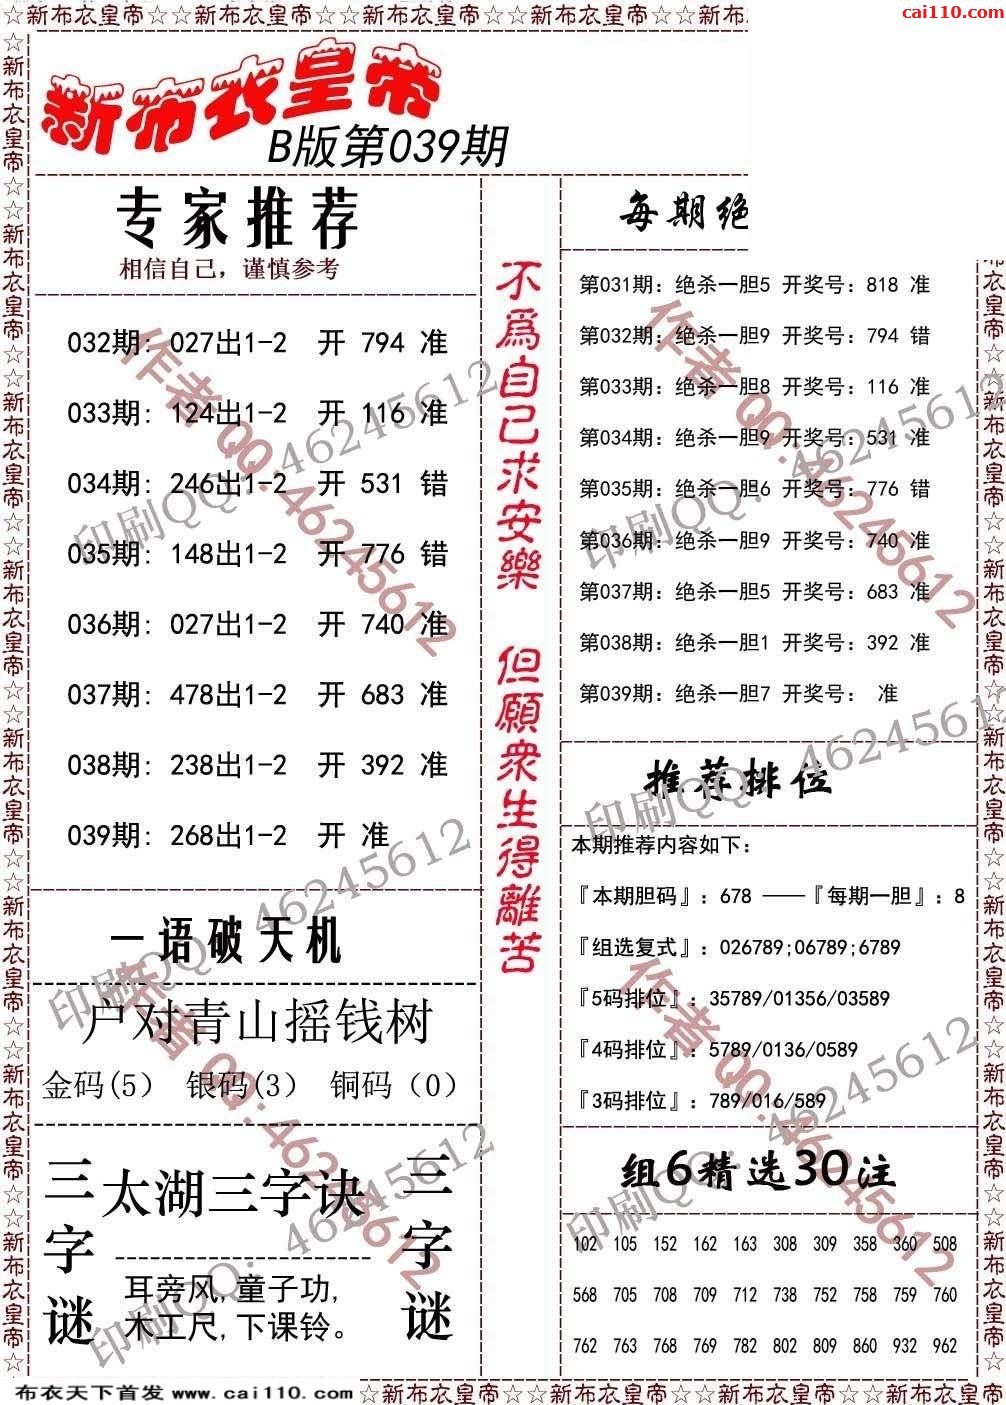 ☆新布衣皇帝☆☆新布衣皇帝☆☆新布衣皇帝☆☆新布衣皇帝☆☆新布
cai110.com
新布衣皇帝
B版第039期
专家推荐
相信自己，谨慎参考
032期: 027出1-2 开 794 准
033期: 124出1-2 开 116 准
034期: 246出1-2 开 531 错
035期: 148出1-2 开 776 错
036期: 027出1-2 开 740 准
037期: 478出1-2 开 683 准
038期: 238出1-2 开 392 准
039期: 268出1-2 开 准
一语破天机
户对青山摇钱树
金码(5) 银码(3) 铜码（0）
三字谜
太湖三字诀
耳旁风,童子功,
木工尺,下课铃。
三字谜
不爲自己求安樂 但願衆生得離苦
每期绝
第031期: 绝杀一胆5 开奖号: 818 准
第032期: 绝杀一胆9 开奖号: 794 错
第033期: 绝杀一胆8 开奖号: 116 准
第034期: 绝杀一胆9 开奖号: 531 准
第035期: 绝杀一胆6 开奖号: 776 错
第036期: 绝杀一胆9 开奖号: 740 准
第037期: 绝杀一胆5 开奖号: 683 准
第038期: 绝杀一胆1 开奖号: 392 准
第039期: 绝杀一胆7 开奖号: 准
推荐排位
本期推荐内容如下:
『本期胆码』: 678 ——『每期一胆』: 8
『组选复式』: 026789;06789;6789
『5码排位』: 35789/01356/03589
『4码排位』: 5789/0136/0589
『3码排位』: 789/016/589
组6精选30注
102 105 152 162 163 308 309 358 360 508
568 705 708 709 712 738 752 758 759 760
762 763 768 769 782 802 809 860 932 962
作者 QQ: 46245612
印刷QQ: 46245612
作者 QQ: 46245612
印刷QQ: 46245612
印刷QQ: 46245612
印刷QQ: 46245612
作者 QQ: 46245612
印刷QQ: 46245612
作者 QQ: 46245612
印刷QQ: 46245612
☆新布衣皇帝☆☆新布衣皇帝☆☆新布衣皇帝☆☆新布衣皇帝☆☆新布衣皇帝☆☆新布衣皇帝☆☆新布衣皇帝☆☆新布衣皇帝☆
布衣天下首发 www.cai110.com
☆新布衣皇帝☆☆新布衣皇帝☆☆新布衣皇帝☆☆新布衣皇帝☆